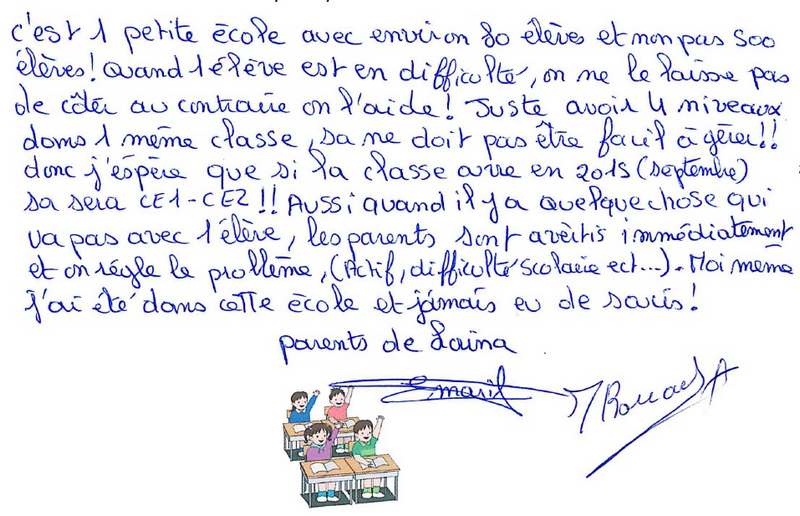 c'est 1 petite école avec environ 80 élèves et non pas 500
élèves! Quand l'élève est en difficulté, on ne le laisse pas
de côter au contraire on l'aide! Juste avoir 4 niveaux
dans 1 même classe, sa ne doit pas être facil à gérer!!
donc j'espère que si la classe ouvre en 2015 (septembre)
sa sera CE1-CE2!! Aussi quand il y a quelque chose qui
va pas avec l'élève, les parents sont avertis immédiatement
et on régle le problème, (Actif, difficulté scolaire ect...). Moi même
j'ai été dans cette école et jamais eu de soucis!
parents de